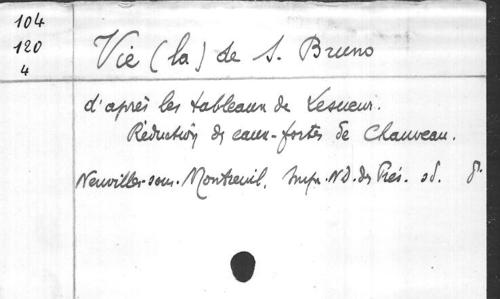 104
120
4
Vie (la) de S. Bruno
d'après les tableaux de Lesueur.
Réduction des eaux-fortes de Chauveau.
Neuville-sous-Montreuil, Impr. N.D. des Prés. sd. 8°.